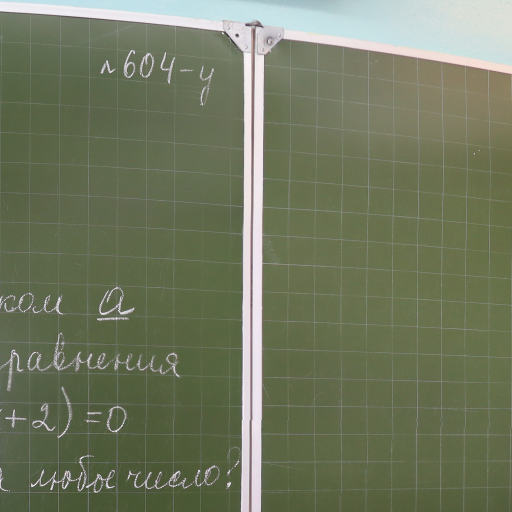 №604-у
ком а
равнения
+2)=0
любое число?